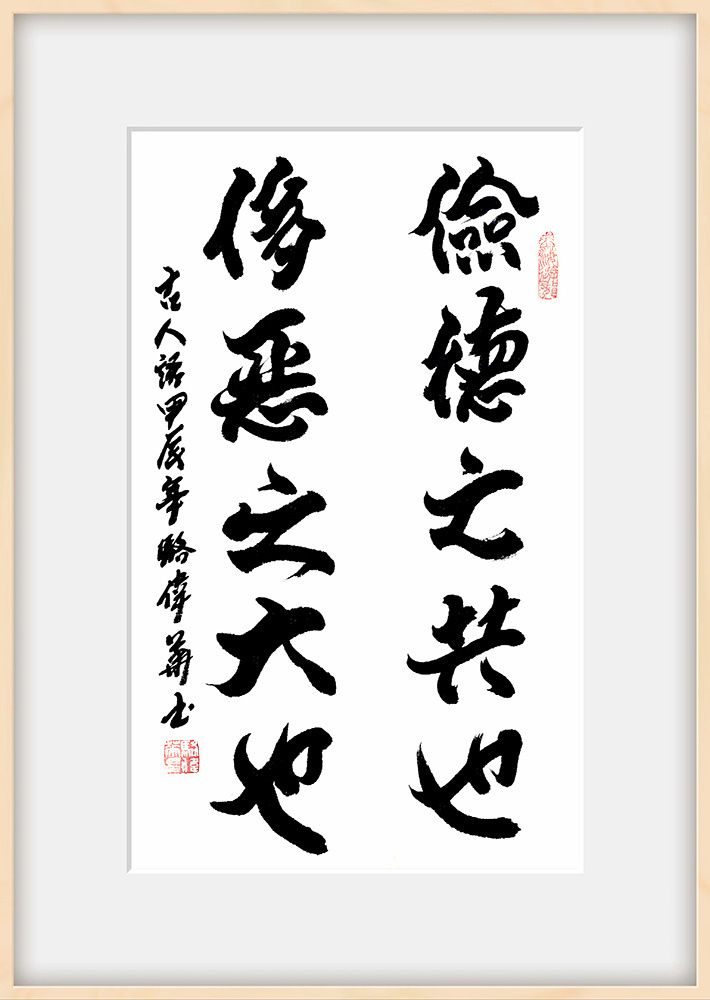 儉德之共也
侈惡之大也
古人語甲辰年駱偉華书